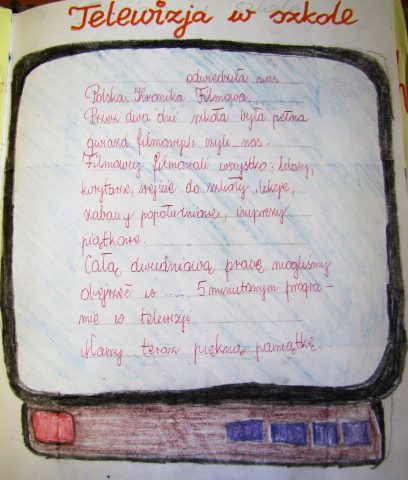 Telewizja w szkole
odwiedziła nas
Polska Kronika Filmowa.
Przez dwa dni szkoła była pełna
gwiazd filmowych czyli nas.
Filmowcy filmowali wszystko: klasy,
korytarze, wejście do szkoły, lekcje,
zabawy popołudniowe, imprezy
piątkowe.
Całą dwudniową pracę mogliśmy
obejrzeć w ..... 5 minutowym progra-
mie w telewizji.
Mamy teraz piękną pamiątkę.